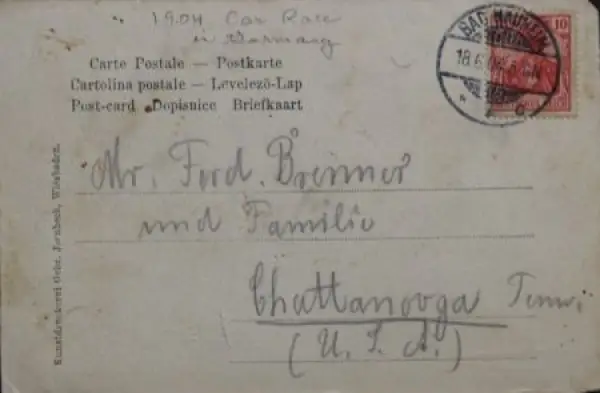 1904 Car Race
in Germany
Carte Postale — Postkarte
Cartolina postale — Levelező-Lap
Post-card Dopisnice Briefkaart
BAD NAUHEIM
18.6.04
10
Mr. Ferd. Brenner
und Familie
Chattanooga Tenn.
(U. S. A.)
Kunstdruckerei Gebr. Wiesbaden.